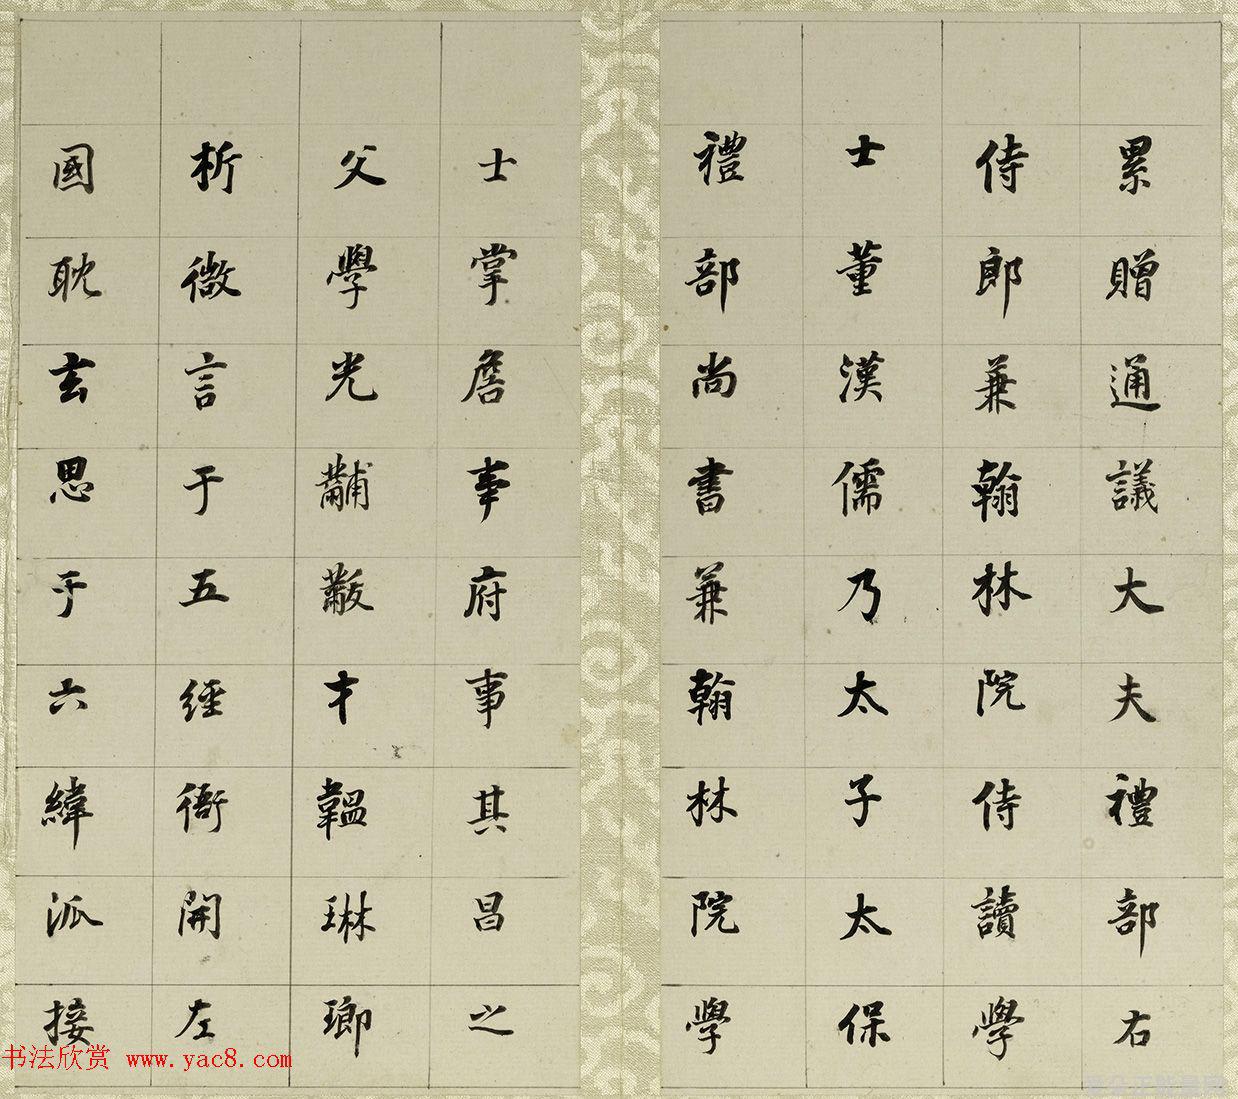 累贈通議大夫禮部右
侍郎兼翰林院侍讀學
士董漢儒乃太子太保
禮部尚書兼翰林院學
士掌詹事府事其昌之
父學光黼黻才韞琳瑯
析微言于五經衙開左
國耽玄思于六緯派接
书法欣赏 www.yac8.com